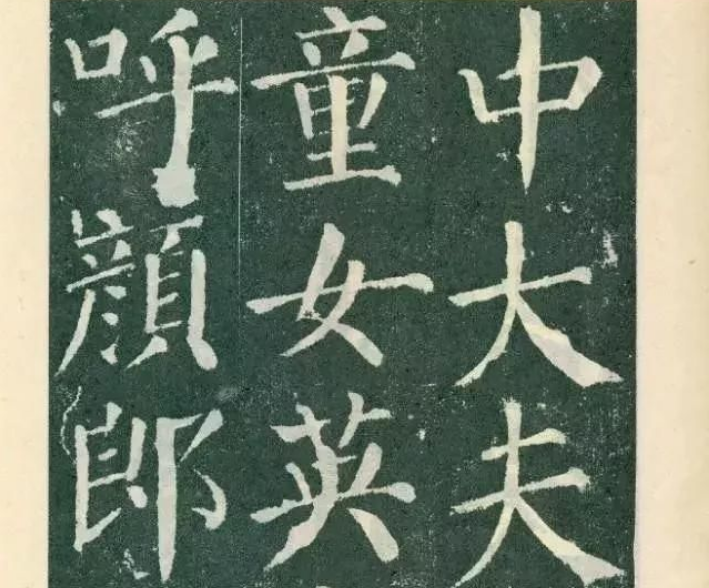 中大夫
童女英
呼顔郎